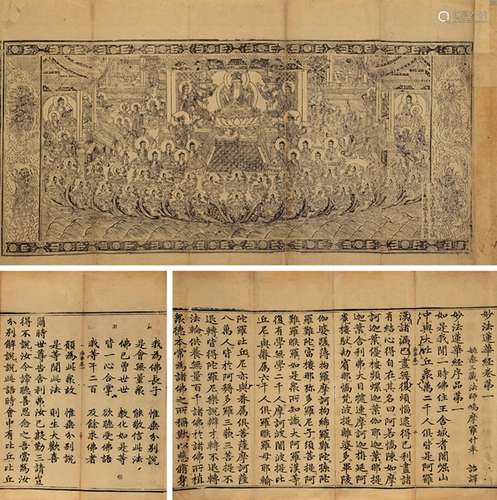 妙法蓮華經卷第一
姚秦三藏法師鳩摩羅什奉 詔譯
妙法蓮華經序品第一
如是我聞一時佛住王舍城耆闍崛山
中與大比丘衆萬二千人俱皆是阿羅
漢諸漏已盡無復煩惱逮得己利盡諸
有結心得自在其名曰阿若憍陳如摩
訶迦葉優樓頻螺迦葉伽耶迦葉那提
迦葉舍利弗大目揵連摩訶迦旃延阿
㝹樓馱劫賓那憍梵波提離婆多畢陵
伽婆蹉薄拘羅摩訶拘絺羅難陀孫陀
羅難陀富樓那彌多羅尼子須菩提阿
難羅睺羅如是衆所知識大阿羅漢等
復有學無學二千人摩訶波闍波提比
丘尼與眷屬六千人俱羅睺羅母耶輸
陀羅比丘尼亦與眷屬俱菩薩摩訶薩
八萬人皆於阿耨多羅三藐三菩提不
退轉皆得陀羅尼樂說辯才轉不退轉
法輪供養無量百千諸佛於諸佛所植
衆德本常為諸佛之所稱歎以慈修身
我為佛長子 惟垂分別說
是會無量衆 能敬信此法
佛已曾世世 教化如是等
皆一心合掌 欲聽受佛語
我等千二百 及餘求佛者
願為此衆故 惟垂分別說
是等聞此法 則生大歡喜
爾時世尊告舍利弗汝已殷勤三請豈
得不說汝今諦聽善思念之吾當為汝
分別解說說此語時會中有比丘比丘